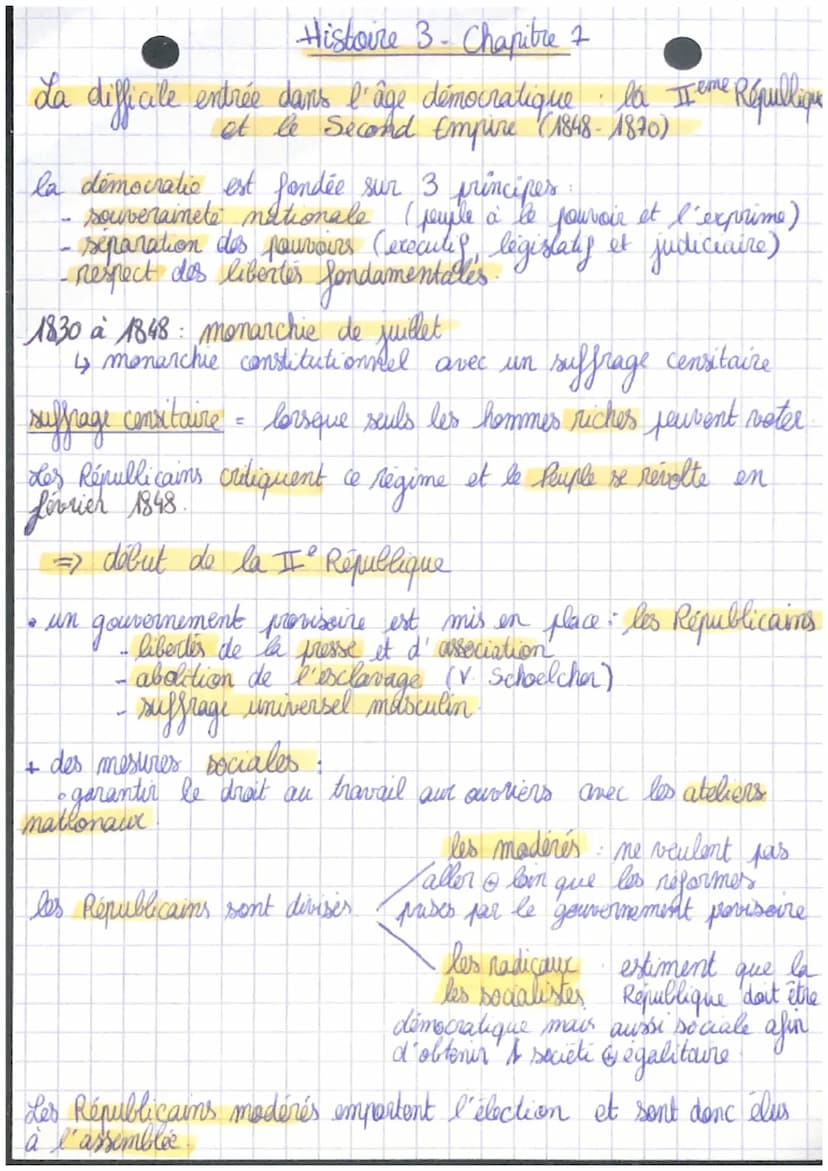 Histoire 3 - Chapitre 1
La difficile entrée dans l'âge démocratique : la IIeme République
et le Second Empire (1848-1870)
la démocratie est fondée sur 3 principes :
- souveraineté nationale (peuple à le pouvoir et l'exprime)
- séparation des pouvoirs (executif, législatif et judiciaire)
- respect des libertés fondamentales.
1830 à 1848 : monarchie de juillet
↳ monarchie constitutionnel avec un suffrage censitaire
suffrage censitaire = lorsque seuls les hommes riches peuvent voter.
Les Républicains critiquent ce régime et le Peuple se révolte en
février 1848.
=> début de la IIe République
• un gouvernement provisoire est mis en place : les Républicains
- libertés de la presse et d'association
- abolition de l'esclavage (V. Schoelcher)
- suffrage universel masculin.
+ des mesures sociales :
• garantir le droit au travail aux ouvriers avec les ateliers
nationaux.
les modérés : ne veulent pas
aller ⊕ loin que les réformes
les Républicains sont divisés prises par le gouvernement provisoire
les radicaux : estiment que la
les socialistes République doit être
démocratique mais aussi sociale afin
d'obtenir 1 société ⊕ égalitaire.
Les Républicains modérés emportent l'élection et sont donc élus
à l'assemblée.